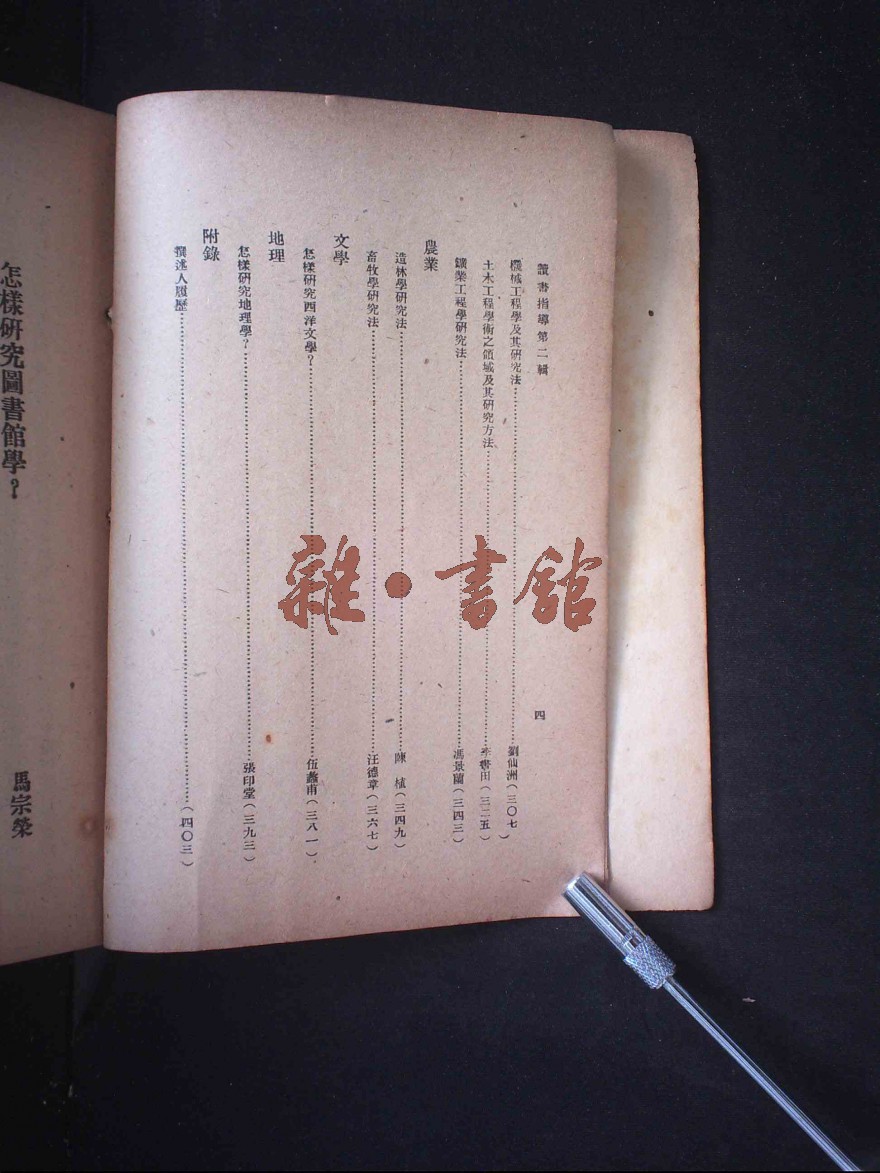 讀書指導第二輯
四
機械工程學及其研究法……劉仙洲(三〇七)
土木工程學術之領域及其研究方法……李書田(三二五)
鑛業工程學研究法……馮景蘭(三四三)
農業
造林學研究法……陳 植(三四九)
畜牧學研究法……汪德章(三六七)
文學
怎樣研究西洋文學?……伍蠡甫(三八一)
地理
怎樣研究地理學?……張印堂(三九三)
附錄
撰述人履歷……(四〇三)
怎樣研究圖書館學?
馬宗榮
雜·書館